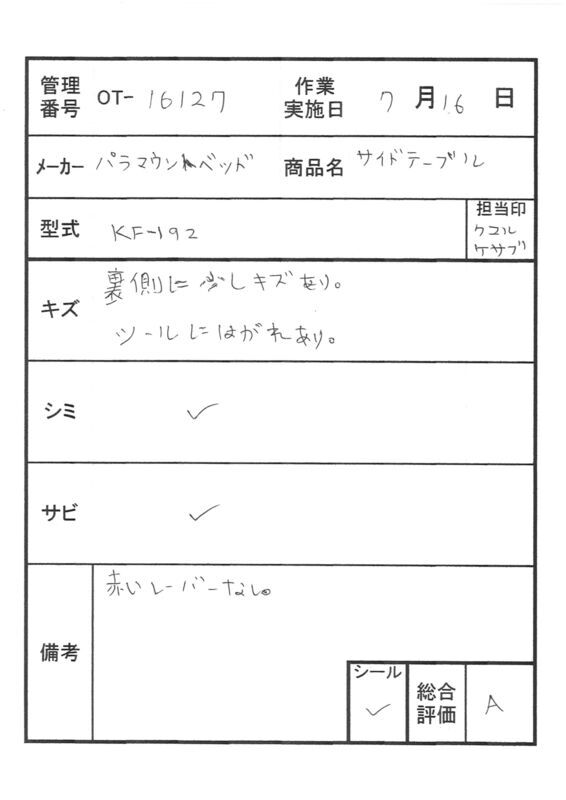 管理番号 OT- 16127 作業実施日 7月16日
メーカー パラマウントベッド 商品名 サイドテーブル
型式 KF-192 担当印
クユル
ケサブ
キズ 裏側に少しキズあり。
ツールにはがれあり。
シミ ✓
サビ ✓
備考 赤いレバーなし。
シール ✓ 総合評価 A